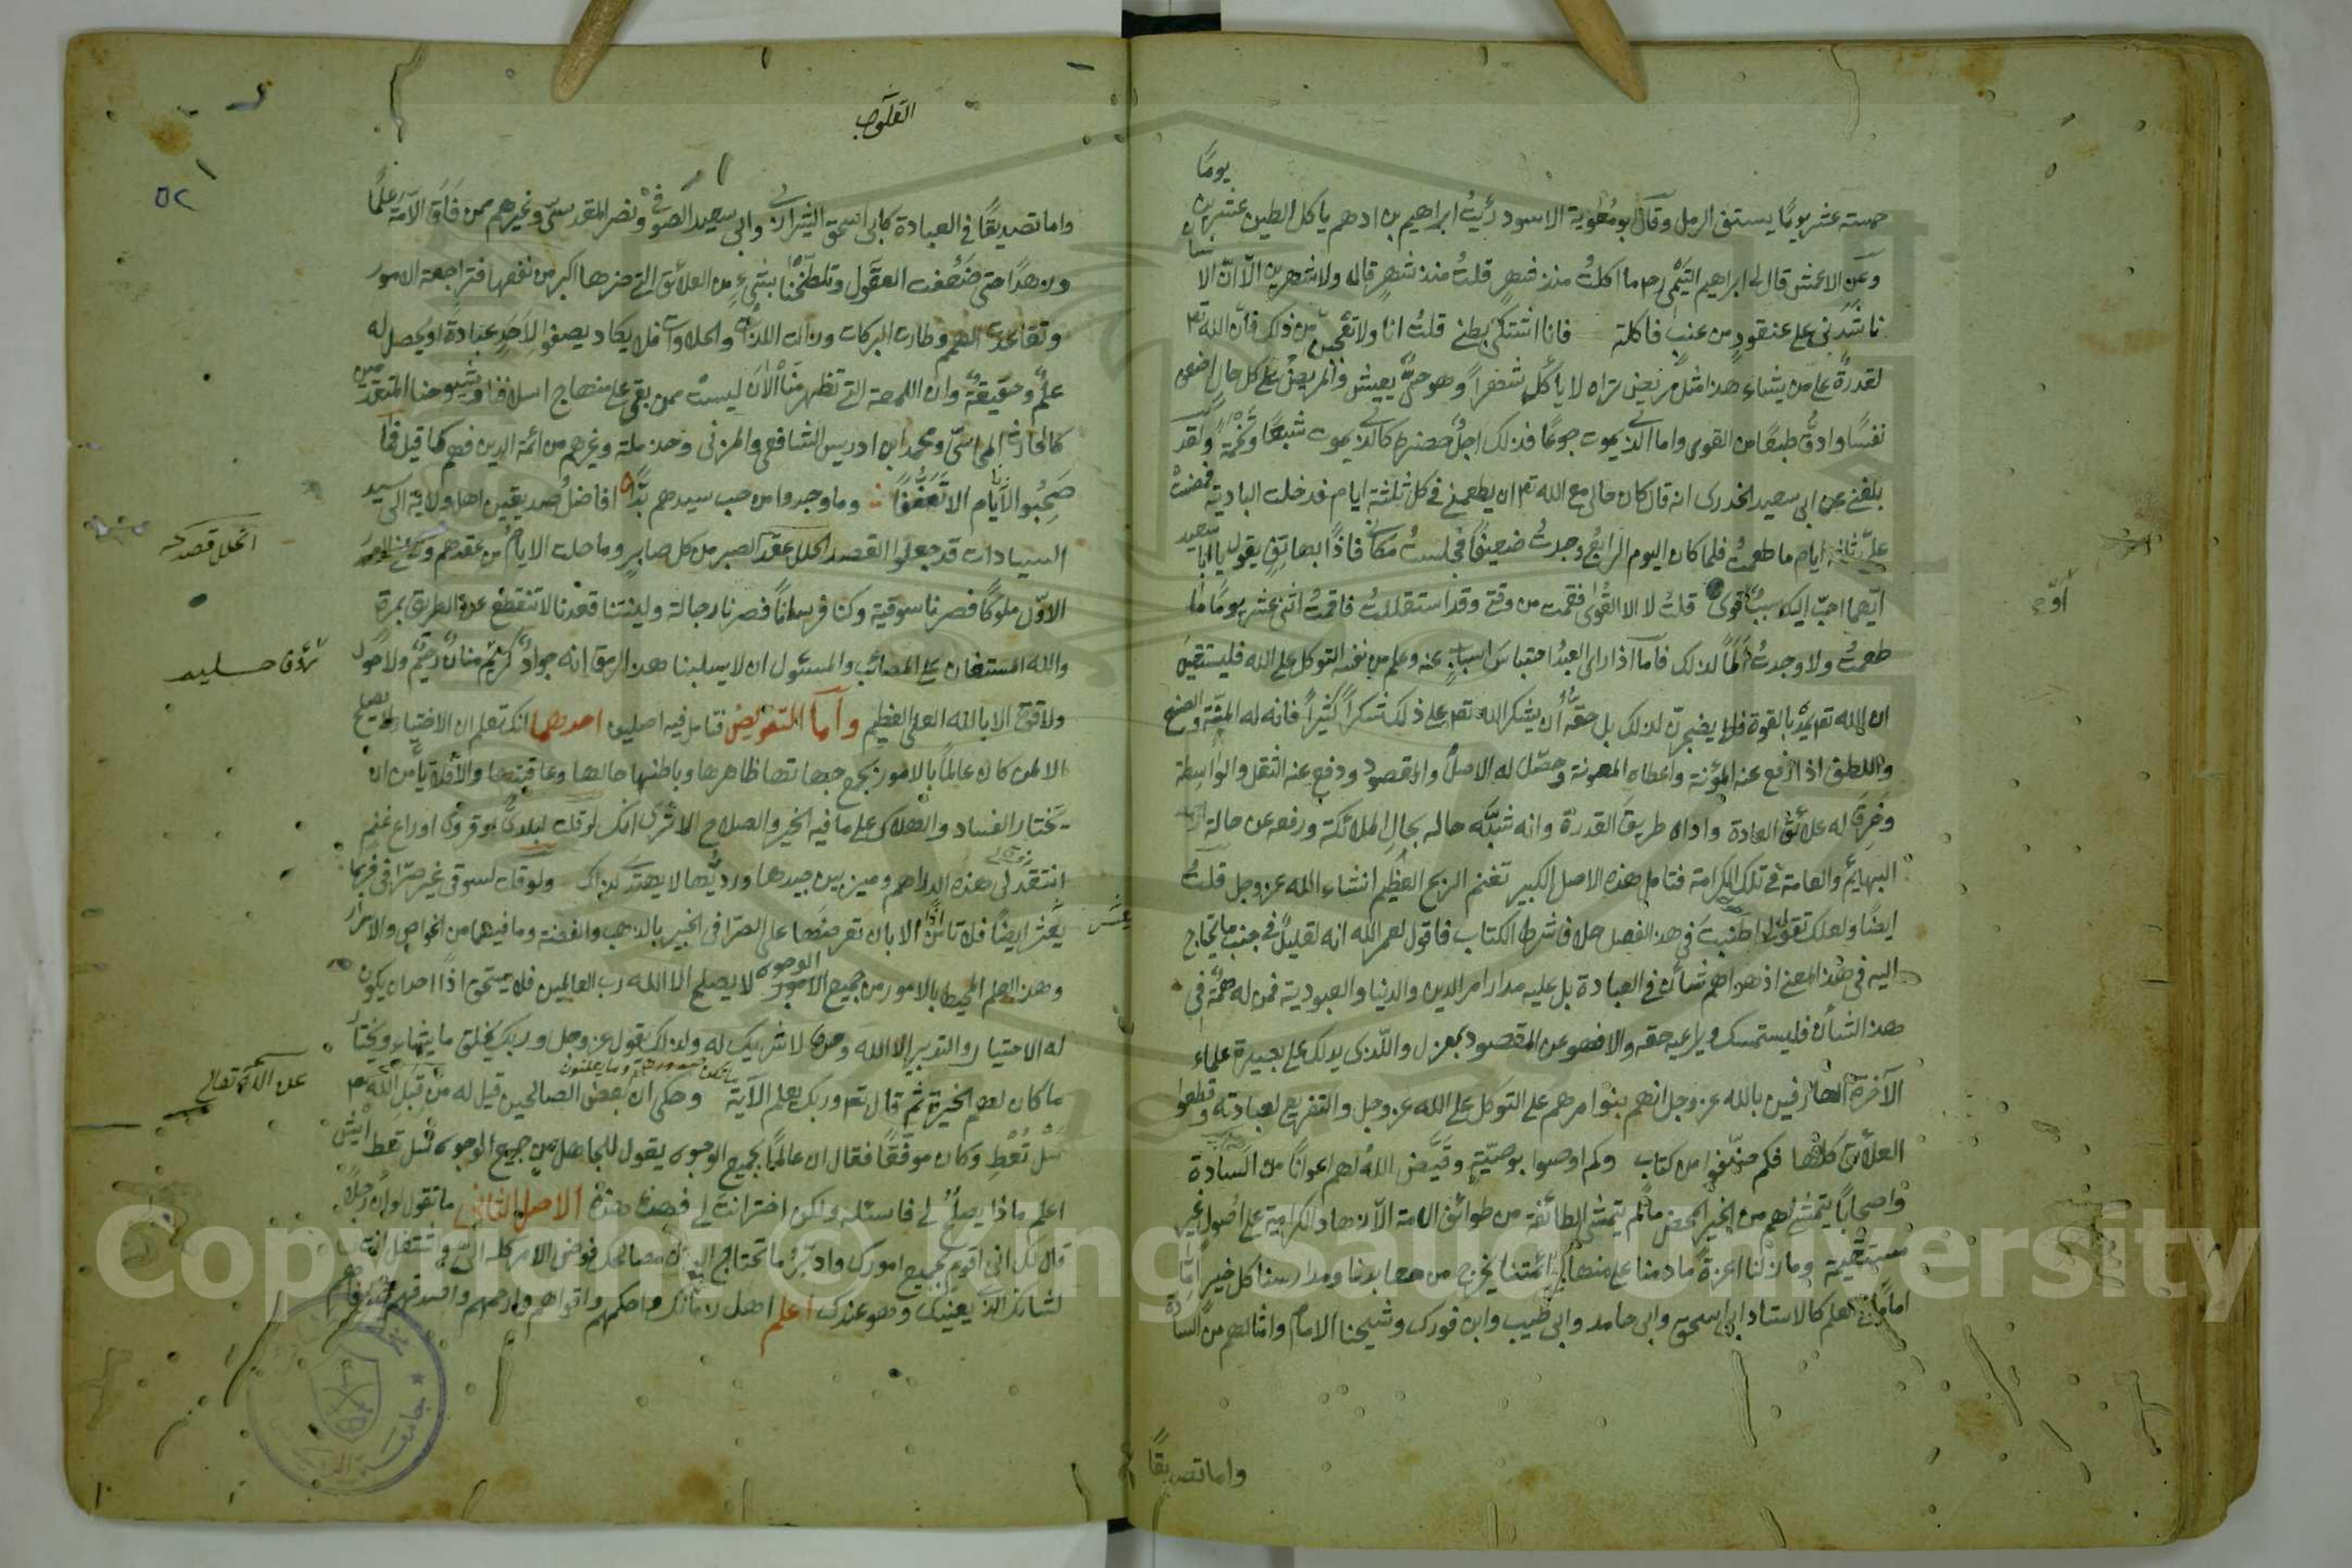 يومًا
خمسته عشر يومًا يستف الرمل وقال بو معوية الاسود رئيت ابراهيم بن ادهم ياكل الطين عشرين
وعن الاعمش قال لى ابراهيم التيمى رح ما اكلت منذ شهر قلت منذ شهر قاله ولا شهرين الا ان
ناشدنى على عنقود من عنب فاكلته فانا اشتكى بطنى قلت انا ولا تعجبن من ذلك فان الله تع
لقدرة على من يشاء هذا مثل مريض تراه لا ياكل شهرا وهو حى يعيش والمريض على كل حال اضعف
نفسا وادق طبعا من القوى واما الذى يموت جوعا فذلك اجل حضره كالذى يموت شبعا وتخمة ولقد
بلغنى عن ابى سعيد الخدرى انه قال كان حالى مع الله تع ان يطعمنى فى كل ثلثة ايام فدخلت البادية فمضت
على ثلثة ايام ما طعمت فلما كان اليوم الرابع وجدت ضعيفا فجلست مكانى فاذا بهاتف يقول يا ابا سعيد
ايهما احب اليك سبب او قوى قلت لا الا القوى فقمت من وقتى وقد استقللت فاقمت اثنى عشر يوما ما
طعمت ولا وجدت الما لذلك فاما اذا راى العبد احتباس اسباب عنه وعلم من نفسه التوكل على الله فليستقين
ان الله تع يمد بالقوة فلا يضجرن لذلك بل حقه ان يشكر الله تع على ذلك شكرا كثيرا فانه له المنة والصنع
واللطف اذا رفع عنه المؤنة واعطاه المعونة وحصل له الاصل والمقصود ودفع عنه الثقل والواسطة
وخرق له علائق العادة واراه طريق القدرة وانه شبه حاله بحال الملائكة ورفعه عن حالة
البهايم والعامة فى تلك الكرامة فتامل هذه الاصل الكبير تغنم الربح العظيم انشاء الله عز وجل قلت
ايضا ولعلك تقول اطنبت فى هذ الفصل خلاف شرط الكتاب فاقول لعمر الله انه لقليل فى جنب ما يحتاج
اليه فى هذا المعنى اذ هو اهم شأن فى العبادة بل عليه مدار امر الدين والدنيا والعبودية فمن له همة فى
هذ الشأن فليستمسك وليراعيه حقه والا فهو عن المقصود بمعزل والذى يدلك على بصيرة علماء
الآخرة العارفين بالله عز وجل انهم بنوا امرهم على التوكل على الله عز وجل والتفريع لعبادته وقطعوا
العلائق كلها فكم صنفوا من كتاب وكم اوصوا بوصية وقيض الله لهم اعوانا من السادة
واصحابا يتمشى لهم من الخير المحض ما لم يتمش لطائفة من طوائف الامة الا زهاد الكرامية على اصول غير
مستقيمة وما زلنا اعزة ما دمنا على منهاج ائمتنا يخرج من معابدنا ومدارسنا كل خير اما
اماما فى العلم كالاستاد ابى اسحق وابى حامد وابى طيب وابن فورك وشيخنا الامام وامثالهم من السادة
واما تصديقًا
القلوب
٥٢
واما تصديقًا فى العبادة كابى اسحق الشيرازى وابى سعيد الصوفى ونصر المقدسى وغيرهم ممن فاق الامة علما
وهدا حتى ضعفت العقول وتلطخنا بشىء من العلائق التى ضرها اكبر من نفعها فتراجعت الامور
وتقاعدت الهمم وطارت البركات وزالت اللذات والحلاوات فلا يكاد يصفوا لاحد عبادة او يحصل له
علم وحقيقة وان اللمعة التى تظهر منا الآن ليست ممن بقى على منهاج اسلافنا وشيوخنا المتقدمين
كالحارث المحاسبى ومحمد ابن ادريس الشافعى والمزنى وحرملة وغيرهم من ائمة الدين فهم كما قيل
صحبوا الايام الا تعففا وما وجدوا من حب سيدهم بدا افاضل صديقين اهل ولاية الى سيد
السيادات قد جعلوا القصد انحل عقد الصبر من كل صابر وما حلت الايام من عقدهم
الاول ملوكا فصرنا سوقية وكنا فرسانا فصرنا رجالة وليتنا قعدنا لا تنقطع عن الطريق بمرة
والله المستعان على المصائب والمسئول ان لا يسلبنا هذ الرمق انه جواد كريم منان رحيم ولا حول
ولا قوة الا بالله العلى العظيم واما التفويض فتامل فيه اصلين احدهما انك تعلم ان الاختيار لا يصلح
الا لمن كان عالما بالامور بجميع جهاتها ظاهرها وباطنها حالها وعاقبتها والا فلا يأمن ان
يختار الفساد والهلاك على ما فيه الخير والصلاح الا ترى انك لو قلت لبدوى او قروى او راع غنم
انتقد لى هذه الدراهم وميز بين جيدها ورديها لا يهتدى لذاك ولو قلت لسوقى غير صرافى فربما
يعثر ايضا فلا تأمن اذا الا بان تعرضها على الصرافى الخبير بالذهب والفضة وما فيهما من الخواص والاسرار
وهذ العلم المحيط بالامور من جميع الوجوه لا يصلح الا الله رب العالمين فلا يستحق اذا احدان يكون
له الاختيار والتدبير الا الله وحده لا شريك له ولذلك يقول عز وجل وربك يخلق ما يشاء ويختار
ما كان لهم الخيرة ثم قال تع وربك يعلم الآية وحكى ان بعض الصالحين قيل له من قبل الله تع
سل تعط وكان موفقا فقال ان عالما بجميع الوجوه يقول للجاهل من جميع الوجوه سل تعط ايش
اعلم ماذا يصلح لى فاسئله ولكن اختر انت لى فهذه هذه الاصل الثانى ما تقول لو ان رجلا
قال لك انى اقوم بجميع امورك وادبر ما تحتاج اليه من مصالحك فوض الامر كله الى واشتغل انت
لشانك الذى يعنيك وهو عندك اعلم اهل زمانك واحكمهم واقواهم وارحمهم واصدقهم
انحل قصد
عن الله تعالى